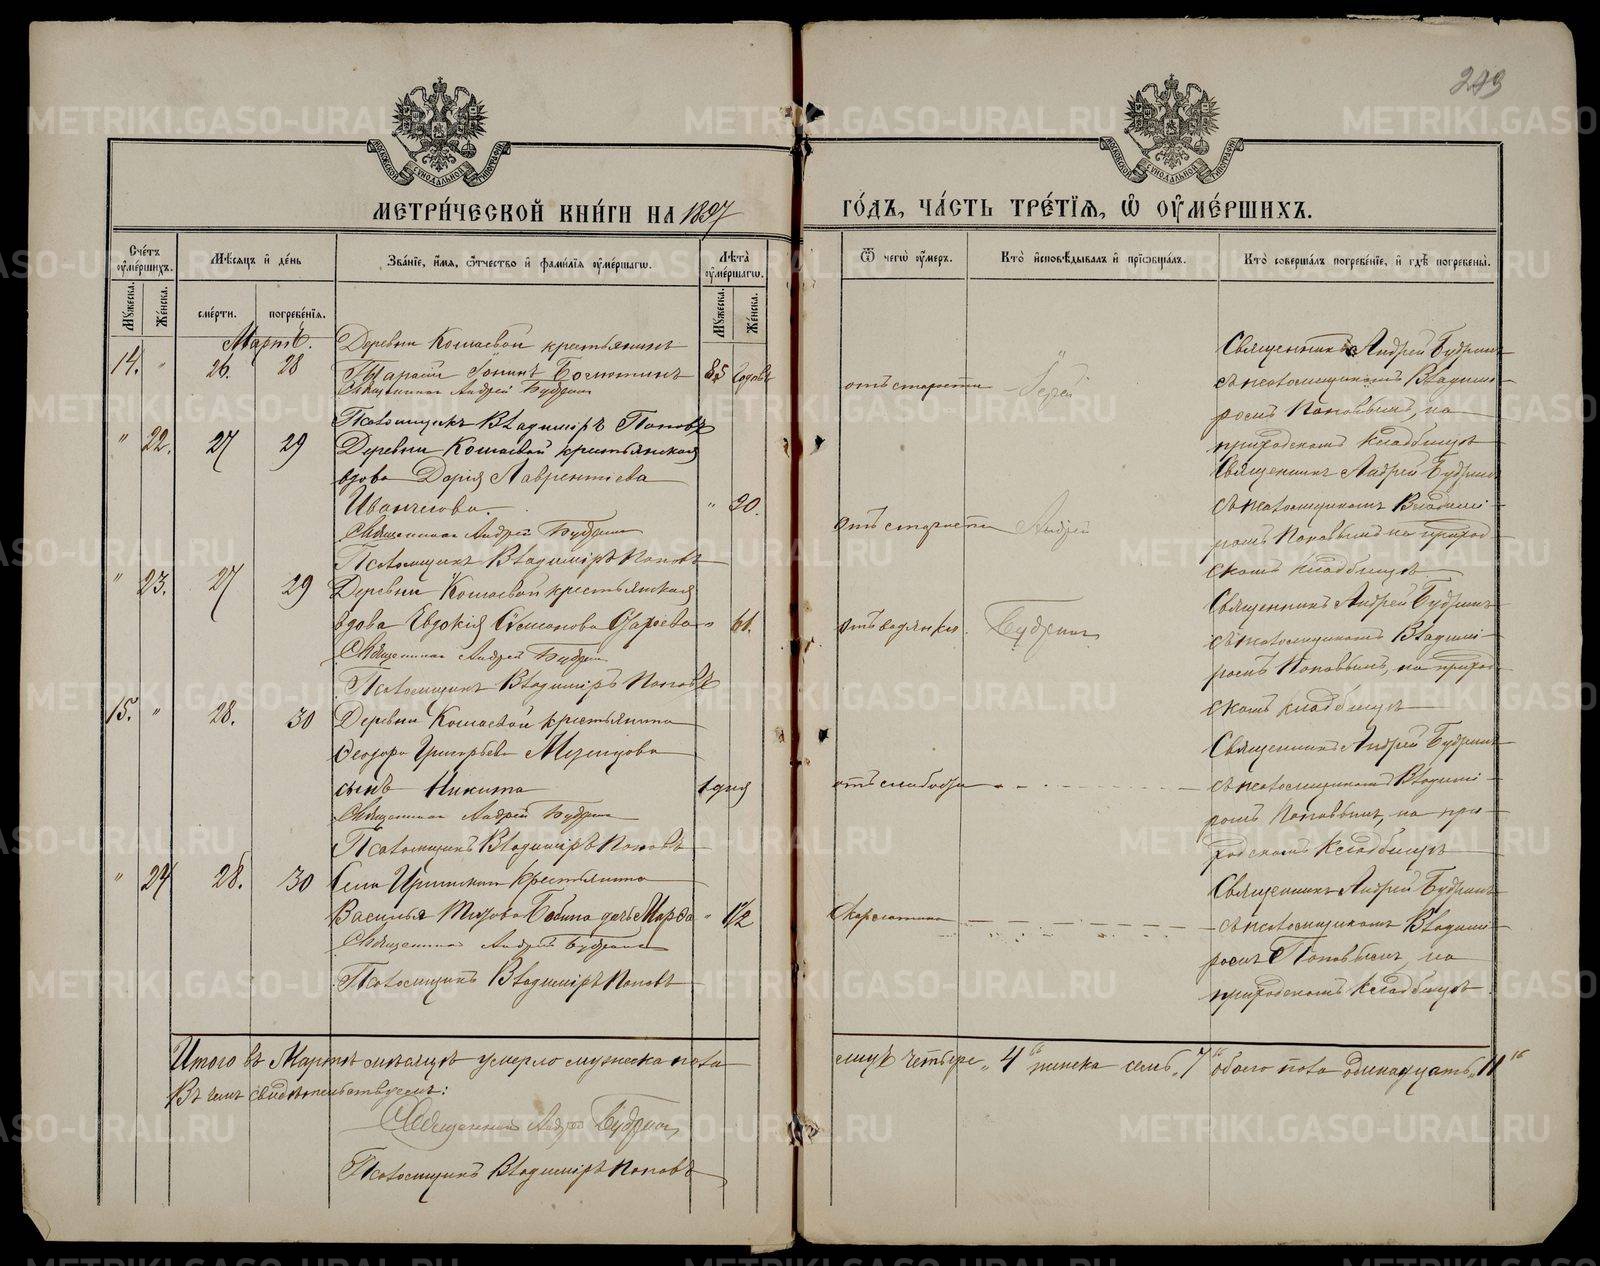 293
МЕТРИ́ЧЕСКОЙ КНИ́ГИ НА 1897 ГО́ДЪ, ЧА́СТЬ ТРЕ́ТІѦ, Ѡ҆ ОУ҆МЕ́РШИХЪ.
Сче́тъ оу҆ме́ршихъ.
Мѣ́сѧцъ и҆ де́нь
Зва́нїе, и҆́мѧ, ѻ҆́тчество и҆ фами́лїѧ оу҆ме́ршагѡ.
Лѣ́та оу҆ме́ршагѡ.
Ѿ чегѡ̀ оу҆́меръ.
Кто̀ и҆сповѣ́дывалъ и҆ прїѡбща́лъ.
Кто̀ соверша́лъ погребе́нїе, и҆ гдѣ̀ погребены̀.
Мꙋ́жеска.
Же́нска.
сме́рти.
погребе́нїѧ.
Мꙋ́жеска.
Же́нска.
Мартъ.
14. " 26. 28
Деревни Кошаевой крестьянинъ
85 годовъ
Священникъ Андрей Будринъ
Псаломщикъ Владиміръ Поповъ
отъ старости
Священникъ Андрей Будринъ
съ псаломщикомъ Владимі-
ромъ Поповымъ, на
приходскомъ кладбищѣ
" 22. 27 29
Деревни Кошаевой крестьянская
вдова Дарія Лаврентіева
" 90.
Священникъ Андрей Будринъ
Псаломщикъ Владиміръ Поповъ
отъ старости
Андрей
Священникъ Андрей Будринъ
съ псаломщикомъ Владимі-
ромъ Поповымъ на приход-
скомъ кладбищѣ
" 23. 27 29
Деревни Кошаевой крестьянская
вдова Евдокія Симонова " 61.
Священникъ Андрей Будринъ
Псаломщикъ Владиміръ Поповъ
отъ водянки.
Будринъ
Священникъ Андрей Будринъ
съ псаломщикомъ Владимі-
ромъ Поповымъ, на приход-
скомъ кладбищѣ
15. " 28. 30
Деревни Кошаевой крестьянина
Ѳеодора Григорьева
сынъ Никита
1 дня
Священникъ Андрей Будринъ
Псаломщикъ Владиміръ Поповъ
отъ слабости
Священникъ Андрей Будринъ
съ псаломщикомъ Владимі-
ромъ Поповымъ, на при-
ходскомъ кладбищѣ
" 24 28. 30
Села крестьянина
Василья Титова Бабина дочь Марѳа " 1½
Священникъ Андрей Будринъ
Псаломщикъ Владиміръ Поповъ
Священникъ Андрей Будринъ
съ псаломщикомъ Владимі-
ромъ Поповымъ, на
приходскомъ кладбищѣ
Итого въ Мартѣ мѣсяцѣ умерло мужеска пола лицъ четыре „4" женска семь „7" обоего пола одинадцать „11"
Въ чемъ свидѣтельствуемъ:
Священникъ Андрей Будринъ
Псаломщикъ Владиміръ Поповъ
METRIKI.GASO-URAL.RU